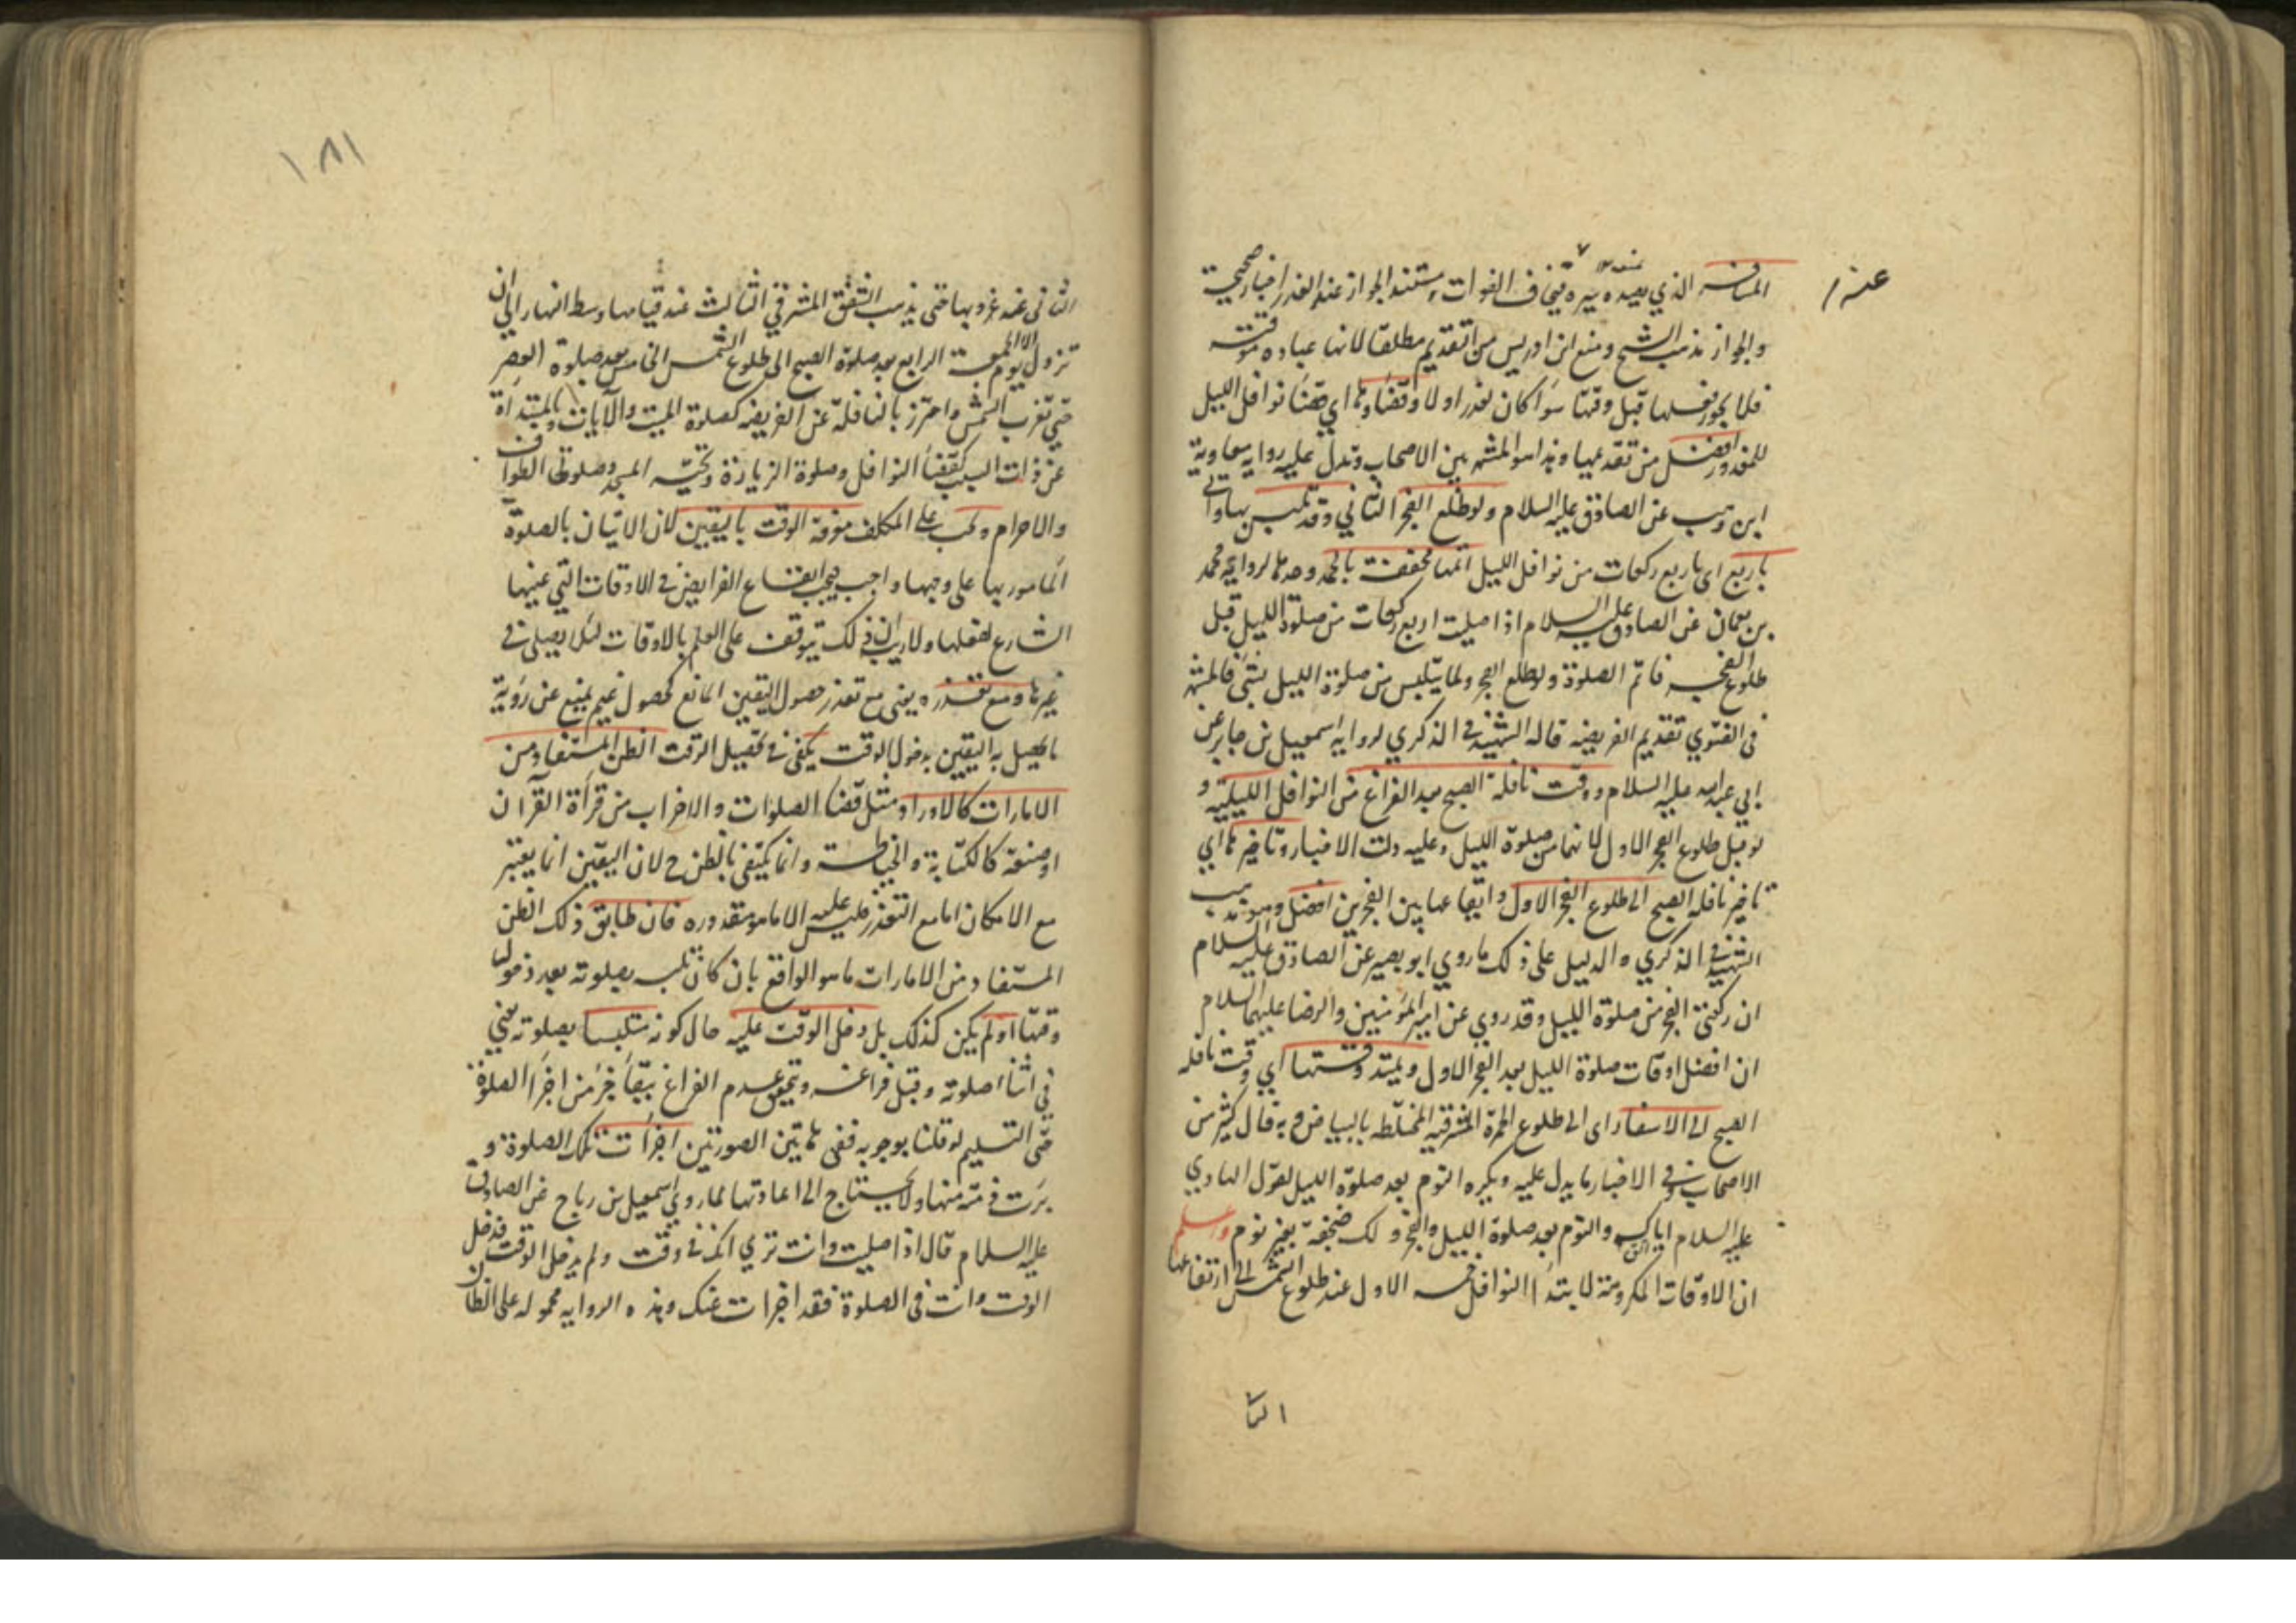 المسافر الذي يصده سيره فيخاف الفوات ومستند الجواز عند العذر اخبار صحيحة
والجواز مذهب الشيخ ومنع ابن ادريس من التقديم مطلقا لانها عبادة موقتة
فلا يجوز فعلها قبل وقتها سواء كان لعذر اولا وقضاؤها اي قضاء نوافل الليل
للمعذور افضل من تقديمها وهذا هو المشهور بين الاصحاب وتدل عليه رواية معاوية
ابن وهب عن الصادق عليه السلام ولو طلع الفجر الثاني وقد تلبس بها واتى
باربع اى باربع ركعات من نوافل الليل اتمها مخففة بالحمد وحدها لرواية محمد
بن نعمان عن الصادق عليه السلام اذا صليت اربع ركعات من صلوة الليل قبل
طلوع الفجر فاتم الصلوة ولو طلع الفجر ولما يتلبس من صلوة الليل بشئ فالمشهور
فى الفتوي تقديم الفريضة قاله الشهيد في الذكري لرواية اسمعيل بن جابر عن
ابي عبد الله عليه السلام ووقت نافلة الصبح بعد الفراغ من النوافل الليلية و
لو قبل طلوع الفجر الاول لانهما من صلوة الليل وعليه دلت الاخبار وتاخيرها اي
تاخير نافلة الصبح الى طلوع الفجر الاول وايقاعها بين الفجرين افضل وهو مذهب
الشهيد في الذكري والدليل على ذلك ما روي ابو بصير عن الصادق عليه السلام
ان ركعتي الفجر من صلوة الليل وقد روي عن امير المؤمنين والرضا عليهما السلام
ان افضل اوقات صلوة الليل بعد الفجر الاول ويمتد وقتها اي وقت نافلة
الصبح الى الاسفار اى الى طلوع الحمرة المشرقية المختلطة بالبياض وبه قال كثير من
الاصحاب وفي الاخبار ما يدل عليه ويكره النوم بعد صلوة الليل لقول الهادي
عليه السلام اياك والنوم بعد صلوة الليل والفجر ولكن ضجعة بغير نوم واعلم
ان الاوقات المكروهة لابتداء النوافل خمسة الاول عند طلوع الشمس الى ارتفاعها
الثا
عنه
١٨١
الثاني عند غروبها حتى يذهب الشفق المشرقي الثالث عند قيامها وسط النهار الى ان
تزول الا يوم الجمعة الرابع بعد صلوة الصبح الى طلوع الشمس الخامس بعد صلوة العصر
حتى تغرب الشمس واحترز بالنافلة عن الفريضة كصلوة الميت والآيات وبالمبتدأة
عن ذات السبب كقضاء النوافل وصلوة الزيارة وتحية المسجد وصلوتى الطواف
والاحرام ويجب على المكلف معرفة الوقت باليقين لان الاتيان بالصلوة
المامور بها على وجهها واجب فيجب ايقاع الفرايض في الاوقات التي عينها
الشارع لفعلها ولا ريب ان ذلك يتوقف على العلم بالاوقات لئلا يصلى في
غيرها ومع تعذره يعنى مع تعذر حصول اليقين لمانع كحصول غيم يمنع عن رؤية
ما يحصل به اليقين بدخول الوقت يكفى في تحصيل الوقت الظن المستفاد من
الامارات كالاوراد مثل قضاء الصلوات والاحزاب من قرأة القرآن
او صنعة كالكتابة والخياطة وانما يكتفى بالظن ح لان اليقين انما يعتبر
مع الامكان اما مع التعذر فليس عليه الا ما هو مقدوره فان طابق ذلك الظن
المستفاد من الامارات ما هو الواقع بان كان تلبسه بصلوته بعد دخول
وقتها او لم يكن كذلك بل دخل الوقت عليه حال كونه متلبسا بصلوته يعني
في اثناء صلوته وقبل فراغه ويتحقق عدم الفراغ ببقاء جزء من اجزاء الصلوة
حتى التسليم لو قلنا بوجوبه ففى هاتين الصورتين اجزأت تلك الصلوة و
برئت ذمته منها ولا يحتاج الى اعادتها لما روي اسمعيل بن رباح عن الصادق
عليه السلام قال اذا صليت وانت تري انك في وقت ولم يدخل الوقت فدخل
الوقت وانت فى الصلوة فقد اجزات عنك وهذه الرواية محمولة على الظان